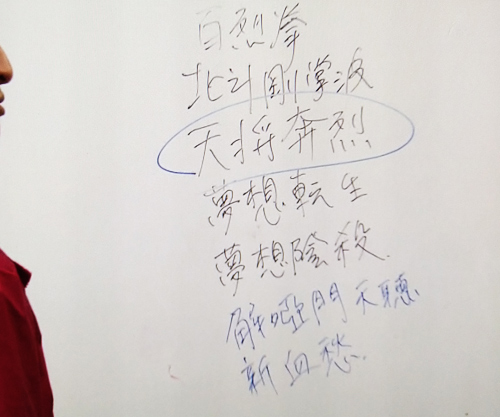 百烈拳
北斗剛掌波
天将奔烈
夢想転生
夢想陰殺
解唖門天聴
新血愁